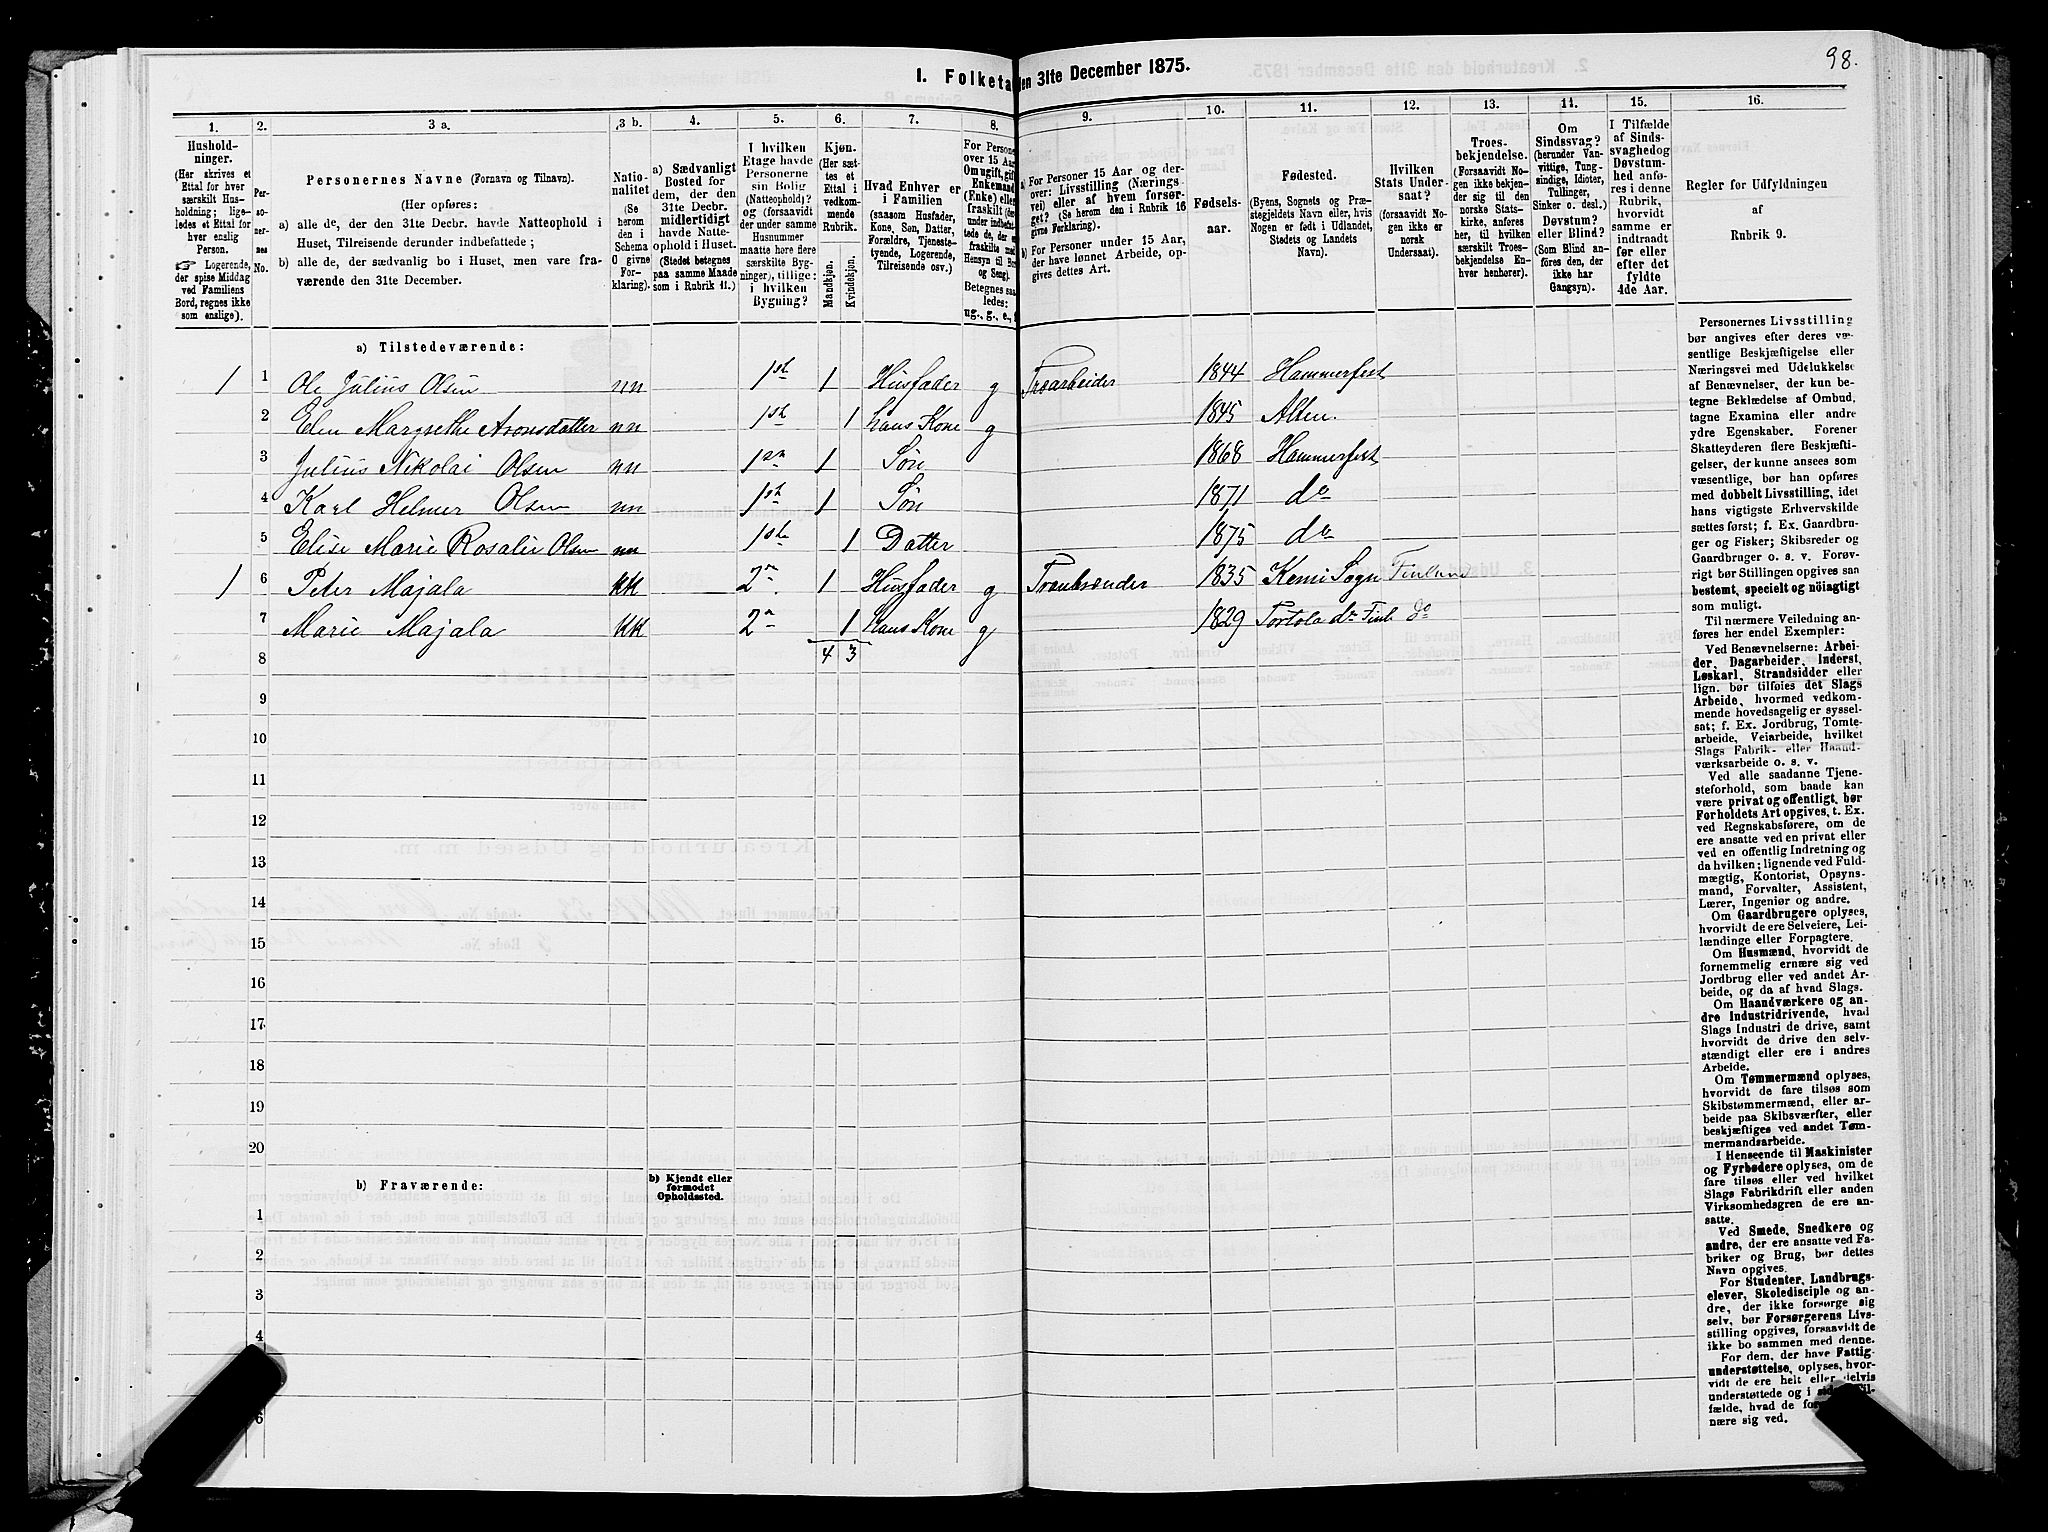 98.
I. Folketa
den 31te December 1875.
1.
2.
3 a.
3 b.
4.
5.
6.
7.
8.
9.
10.
11.
12.
13.
14.
15.
16.
Hushold-
ninger.
(Her skrives et
Ettal for hver
særskilt Hus-
holdning; lige-
ledes et Ettal for
hver enslig
Person.
☞ Logerende,
der spise Middag
ved Familiens
Bord, regnes ikke
som enslige).
Per-
so-
ner-
nes
No.
Personernes Navne (Fornavn og Tilnavn).
(Her opføres:
a) alle de, der den 31te Decbr. havde Natteophold i
Huset, Tilreisende derunder indbefattede;
b) alle de, der sædvanlig bo i Huset, men vare fra-
værende den 31te December.
Natio-
nalitet
(Se
herom
den i
Schema
O givne
For-
klaring).
a) Sædvanligt
Bosted for
dem, der den
31te Decbr.
midlertidigt
havde Natte-
ophold i Huset.
(Stedet betegnes
paa samme Maade
som i Rubrik 11.)
I hvilken
Etage havde
Personerne
sin Bolig
(Natteophold)?
og (forsaavidt
der under samme
Husnummer
maatte høre flere
særskilte Byg-
ninger), tillige:
i hvilken
Bygning?
Kjøn.
(Her sæt-
tes et
Ettal i
vedkom-
mende
Rubrik.
Mandkjøn.
Kvindekjøn.
Hvad Enhver er
i Familien
(saasom Husfader,
Kone, Søn, Datter,
Forældre, Tjeneste-
tyende, Logerende,
Tilreisende osv.)
For Persone
over 15 Aar
Om ugift, gift
Enkemand
(Enke) elle
fraskilt (de
under indbefat-
tede de, der e
fraskilte med
Hensyn til Bo
og Seng).
Betegnes saa
ledes:
ug., g., e., f
a) For Personer 15 Aar og der-
over: Livsstilling (Nærings
vei) eller af hvem forsør-
get? (Se herom den i Rubrik 16
givne Forklaring).
b) For Personer under 15 Aar,
der have lønnet Arbeide, op-
gives dettes Art.
Fødsels-
aar.
Fødested.
(Byens, Sognets og Præ-
stegjeldets Navn eller, hvis
Nogen er født i Udlandet,
Stedets og Landets
Navn).
Hvilken
Stats Under-
saat?
(forsaavidt No-
gen ikke er
norsk
Undersaat).
Troes-
bekjendelse.
(Forsaavidt No-
gen ikke bekjen-
der sig til den
norske Stats-
kirke, anføres
her, til hvilken
særskilt Troes-
bekjendelse En-
hver henhører).
Om
Sindssvag?
(herunder Van-
vittige, Tung-
sindige, Idioter,
Tullinger,
Sinker o. desl.)
Døvstum?
eller Blind?
(Som Blind an-
føres den, der
ikke har
Gangsyn).
I Tilfælde
af Sinds-
svaghed og
Døvstum-
hed anfø-
res i denne
Rubrik,
hvorvidt
samme er
indtraadt
før eller
efter det
fyldte
4de Aar.
Regler for Udfyldningen
af
Rubrik 9.
a) Tilstedeværende:
1 1 Ole Julius Olsen nn 1st 1 Husfader g Træarbeider 1844 Hammerfest
2 Elen Margrethe Aronsdatter nn 1st 1 hans Kone g 1845 Alten.
3 Julius Nikolai Olsen nn 1 1 Søn 1868 Hammerfest
4 Karl Helmer Olsen nn 1st 1 Søn 1871 do
5 Elise Marie Rosalie Olsen nn 1ste 1 Datter 1875 do
1 6 Peter Majala kk 2n 1 Husfader g Tranbrænder 1835 Kemi Sogn Finland
7 Marie Majala kk 2n 1 hans Kone g 1829 Tortola do Finl do
8 4 3
9
10
11
12
13
14
15
16
17
18
19
20
b) Fraværende:
b) Kjendt eller
formodet
Opholdssted.
1
2
3
4
6
Personernes Livsstilling
bør angives efter deres væ-
sentlige Beskjæftigelse eller
Næringsvei med Udelukkelse
af Benævnelser, der kun be-
tegne Beklædelse af Ombud,
tagne Examina eller andre
ydre Egenskaber. Forener
Skatteyderen flere Beskjæfti-
gelser, der kunne ansees som
væsentlige, bør han opføres
med dobbelt Livsstilling, idet
hans vigtigste Erhvervskilde
sættes først; f. Ex. Gaardbru-
ger og Fisker; Skibsreder og
Gaardbruger o. s. v. Forøv-
rigt bør Stillingen opgives saa
bestemt, specielt og nöiagtigt
som muligt.
Til nærmere Veiledning an-
føres her endel Exempler:
Ved Benævnelserne: Arbei-
der, Dagarbeider, Inderst,
Løskarl, Strandsidder eller
lign. bør tilføies det Slags
Arbeide, hvormed vedkom-
mende hovedsagelig er syssel-
sat; f. Ex. Jordbrug, Tomte-
arbeide, Veiarbeide, hvilket
Slags Fabrik- eller Haand-
værksarbeide o. s. v.
Ved alle saadanne Tjene-
steforhold, som baade kan
være privat og offentligt, bør
Forholdets Art opgives, t. Ex.
ved Regnskabsførere, om de
ere ansatte ved en privat eller
ved en offentlig Indretning og
da hvilken; lignende ved Fuld-
mægtig, Kontorist, Opsyns-
mand, Forvalter, Assistent,
Lærer, Ingeniør og andre.
Om Gaardbrugere oplyses,
hvorvidt de ere Selveiere, Lei-
lændinge eller Forpagtere.
Om Husmænd, hvorvidt de
fornemmelig ernære sig ved
Jordbrug eller ved andet Ar-
beide, og da af hvad Slags.
Om Haandværkere og an-
dre Industridrivende, hvad
Slags Industri de drive, samt
hvorvidt de drive den selv-
stændigt eller ere i andres
Arbeide.
Om Tømmermænd oplyses,
hvorvidt de fare tilsøs som
Skibstømmermænd, eller ar-
beide paa Skibsværfter, eller
beskjæftiges ved andet Tøm-
mermandsarbeide.
I Henseende til Maskinister
og Fyrbødere oplyses, om de
fare tilsøs eller ved hvilket
Slags Fabrikdrift eller anden
Virksomhedsgren de ere an-
satte.
Ved Smede, Snedkere og
andre, der ere ansatte ved Fa-
briker og Brug, bør dettes
Navn opgives.
For Studenter, Landbrugs-
elever, Skoledisciple og an-
dre, der ikke forsørge sig
selv, bør Forsørgerens Livs-
stilling opgives, forsaavidt de
ikke bo sammen med denne.
For dem, der have Fattig-
understøttelse, oplyses, hvor-
vidt de ere helt eller delvis
understøttede og i
fælde, hvad de
nære sig ved.